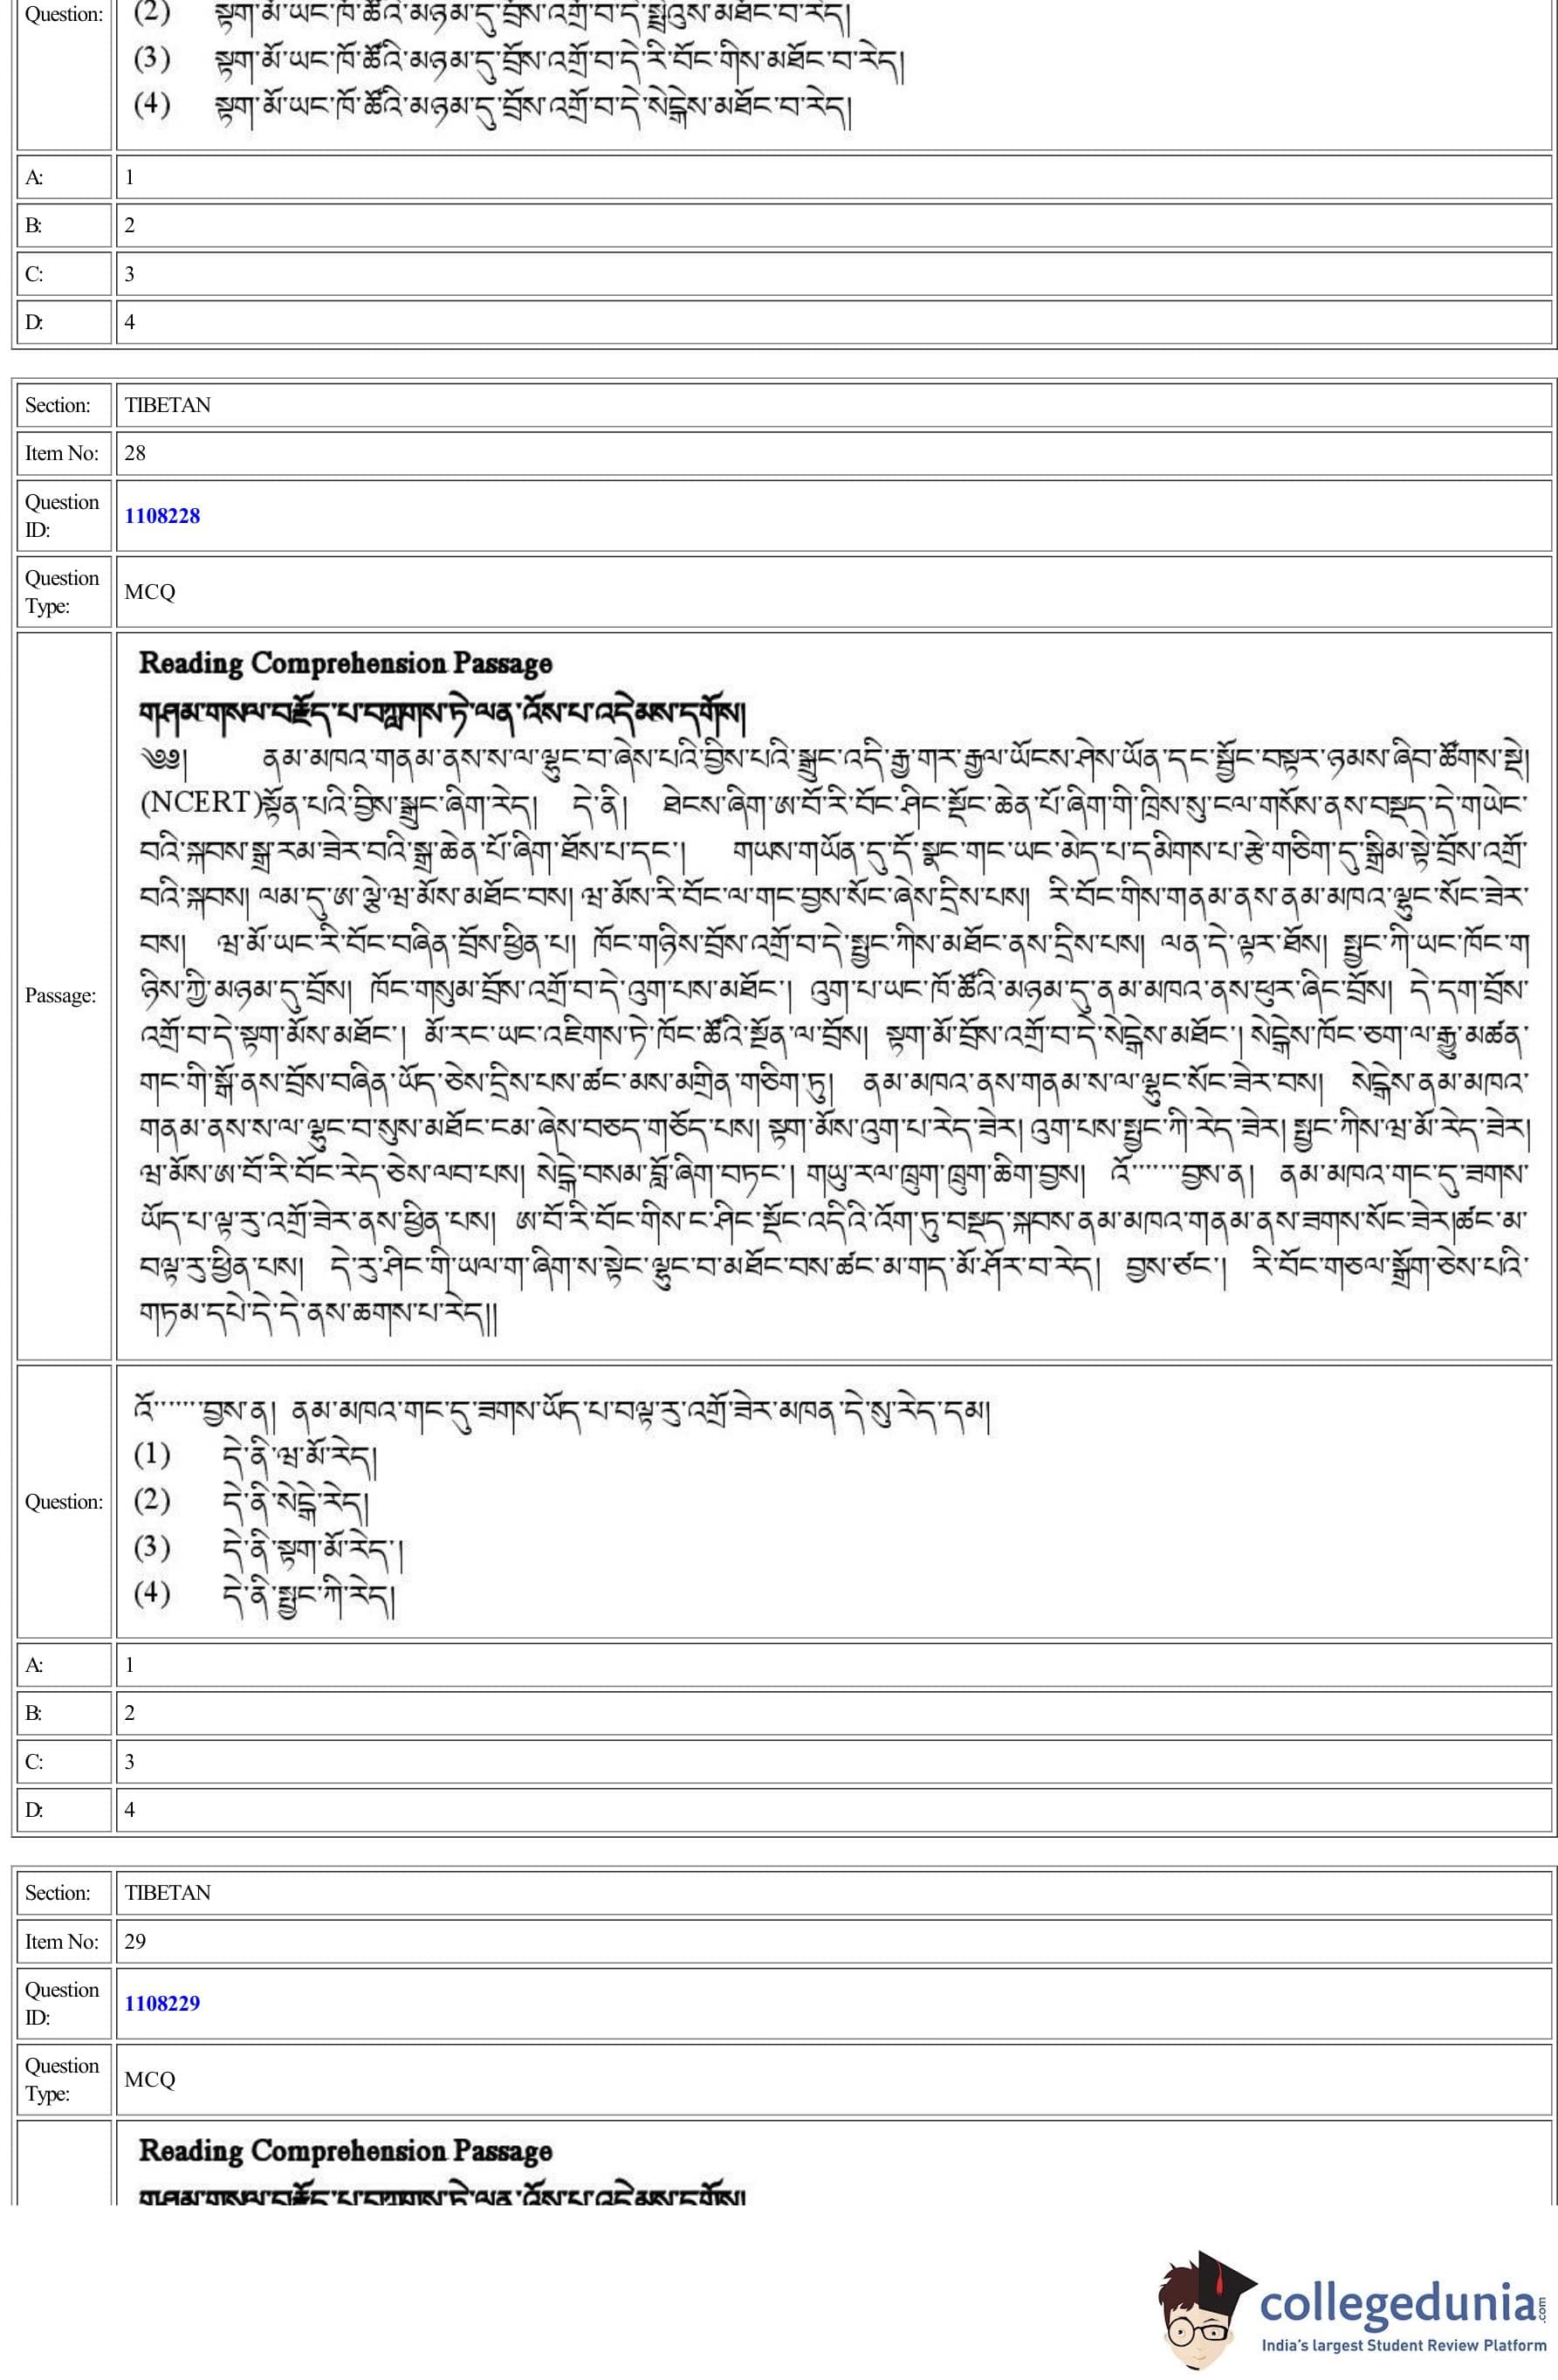 Question:
(2) སྟག་མོ་ཡང་ཁོ་ཚོའི་མཉམ་དུ་བྲོས་འགྲོ་བ་དེ་སྤྲེའུས་མཐོང་བ་རེད།
(3) སྟག་མོ་ཡང་ཁོ་ཚོའི་མཉམ་དུ་བྲོས་འགྲོ་བ་དེ་རི་བོང་གིས་མཐོང་བ་རེད།
(4) སྟག་མོ་ཡང་ཁོ་ཚོའི་མཉམ་དུ་བྲོས་འགྲོ་བ་དེ་སེངྒེས་མཐོང་བ་རེད།
A: 1
B: 2
C: 3
D: 4
Section: TIBETAN
Item No: 28
Question ID: 1108228
Question Type: MCQ
Passage:
Reading Comprehension Passage
གཤམ་གསལ་བརྗོད་པ་བཀླགས་ཏེ་ལན་འོས་པ་འདེམས་དགོས།
༄༅། ནམ་མཁའ་གནམ་ནས་ས་ལ་ལྷུང་བ་ཞེས་པའི་བྱིས་པའི་སྒྲུང་འདི་རྒྱ་གར་རྒྱལ་ཡོངས་ཤེས་ཡོན་དང་སྦྱོང་བསྟར་ཉམས་ཞིབ་ཚོགས་སྡེ།
(NCERT)སྟོན་པའི་བྱིས་སྒྲུང་ཞིག་རེད། དེ་ནི། ཐེངས་ཞིག་ཨ་བོ་རི་བོང་ཤིང་སྡོང་ཆེན་པོ་ཞིག་གི་ཁྲིས་སུ་ངལ་གསོས་ནས་བསྡད་དེ་གཡེང་
བའི་སྐབས་སྒྲ་རམ་ཟེར་བའི་སྒྲ་ཆེན་པོ་ཞིག་ཐོས་པ་དང་། གཡས་གཡོན་དུ་དོ་སྣང་གང་ཡང་མེད་པ་དམིགས་པ་རྩེ་གཅིག་དུ་སྒྲིམ་སྟེ་བྲོས་འགྲོ་
བའི་སྐབས། ལམ་དུ་ཨ་ལྕེ་ཝ་མོས་མཐོང་བས། ཝ་མོས་རི་བོང་ལ་གང་བྱས་སོང་ཞེས་དྲིས་པས། རི་བོང་གིས་གནམ་ནས་ནམ་མཁའ་ལྷུང་སོང་ཟེར་
བས། ཝ་མོ་ཡང་རི་བོང་བཞིན་བྲོས་ཕྱིན་པ། ཁོང་གཉིས་བྲོས་འགྲོ་བ་དེ་སྤྱང་ཀིས་མཐོང་ནས་དྲིས་པས། ལན་དེ་ལྟར་ཐོས། སྤྱང་ཀི་ཡང་ཁོང་ག
ཉིས་ཀྱི་མཉམ་དུ་བྲོས། ཁོང་གསུམ་བྲོས་འགྲོ་བ་དེ་འུག་པས་མཐོང་། འུག་པ་ཡང་ཁོ་ཚོའི་མཉམ་དུ་ནམ་མཁའ་ནས་ཕུར་ཞིང་བྲོས། དེ་དག་བྲོས་
འགྲོ་བ་དེ་སྟག་མོས་མཐོང་། མོ་རང་ཡང་འཇིགས་ཏེ་ཁོང་ཚོའི་སྔོན་ལ་བྲོས། སྟག་མོ་བྲོས་འགྲོ་བ་དེ་སེངྒེས་མཐོང་། སེངྒེས་ཁོང་ཅག་ལ་རྒྱུ་མཚན་
གང་གི་སྒོ་ནས་བྲོས་བཞིན་ཡོད་ཅེས་དྲིས་པས་ཚང་མས་མགྲིན་གཅིག་ཏུ། ནམ་མཁའ་ནས་གནམ་ས་ལ་ལྷུང་སོང་ཟེར་བས། སེངྒེས་ནམ་མཁའ་
གནམ་ནས་ས་ལ་ལྷུང་བ་སུས་མཐོང་ངམ་ཞེས་བཅད་གཅོད་པས། སྟག་མོས་འུག་པ་རེད་ཟེར། འུག་པས་སྤྱང་ཀི་རེད་ཟེར། སྤྱང་ཀིས་ཝ་མོ་རེད་ཟེར།
ཝ་མོས་ཨ་བོ་རི་བོང་རེད་ཅེས་ལབ་པས། སེངྒེ་བསམ་བློ་ཞིག་བཏང་། གཡུ་རལ་ཁྲུག་ཁྲུག་ཆིག་བྱས། འོ་་་་་་་བྱས་ན། ནམ་མཁའ་གང་དུ་ཟགས་
ཡོད་པ་ལྟ་རུ་འགྲོ་ཟེར་ནས་ཕྱིན་པས། ཨ་བོ་རི་བོང་གིས་ང་ཤིང་སྡོང་འདིའི་འོག་ཏུ་བསྡད་སྐབས་ནམ་མཁའ་གནམ་ནས་ཟགས་སོང་ཟེར།ཚང་མ་
བལྟ་རུ་ཕྱིན་པས། དེ་རུ་ཤིང་གི་ཡལ་ག་ཞིག་ས་སྟེང་ལྷུང་བ་མཐོང་བས་ཚང་མ་གད་མོ་ཤོར་བ་རེད། བྱས་ཙང་། རི་བོང་གཅལ་སྒྲོག་ཅེས་པའི་
གཏམ་དཔེ་དེ་དེ་ནས་ཆགས་པ་རེད།།
Question:
འོ་་་་་་་བྱས་ན། ནམ་མཁའ་གང་དུ་ཟགས་ཡོད་པ་བལྟ་རུ་འགྲོ་ཟེར་མཁན་དེ་སུ་རེད་དམ།
(1) དེ་ནི་ཝ་མོ་རེད།
(2) དེ་ནི་སེངྒེ་རེད།
(3) དེ་ནི་སྟག་མོ་རེད་།
(4) དེ་ནི་སྤྱང་ཀི་རེད།
A: 1
B: 2
C: 3
D: 4
Section: TIBETAN
Item No: 29
Question ID: 1108229
Question Type: MCQ
Reading Comprehension Passage
གཤམ་གསལ་བརྗོད་པ་བཀླགས་ཏེ་ལན་འོས་པ་འདེམས་དགོས།
collegedunia.com
India's largest Student Review Platform